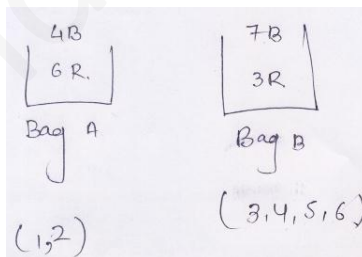 4B
6 R.
Bag A
(1,2)
7B
3R
Bag B
(3,4,5,6)